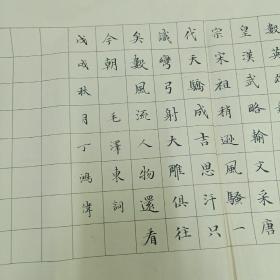 數英
皇漢武略輸文采唐
宗宋祖稍遜風騷一
代天驕成吉思汗只
識彎弓射大雕俱往
矣數風流人物還看
今朝 毛澤東詞
戊戌秋月丁鴻偉